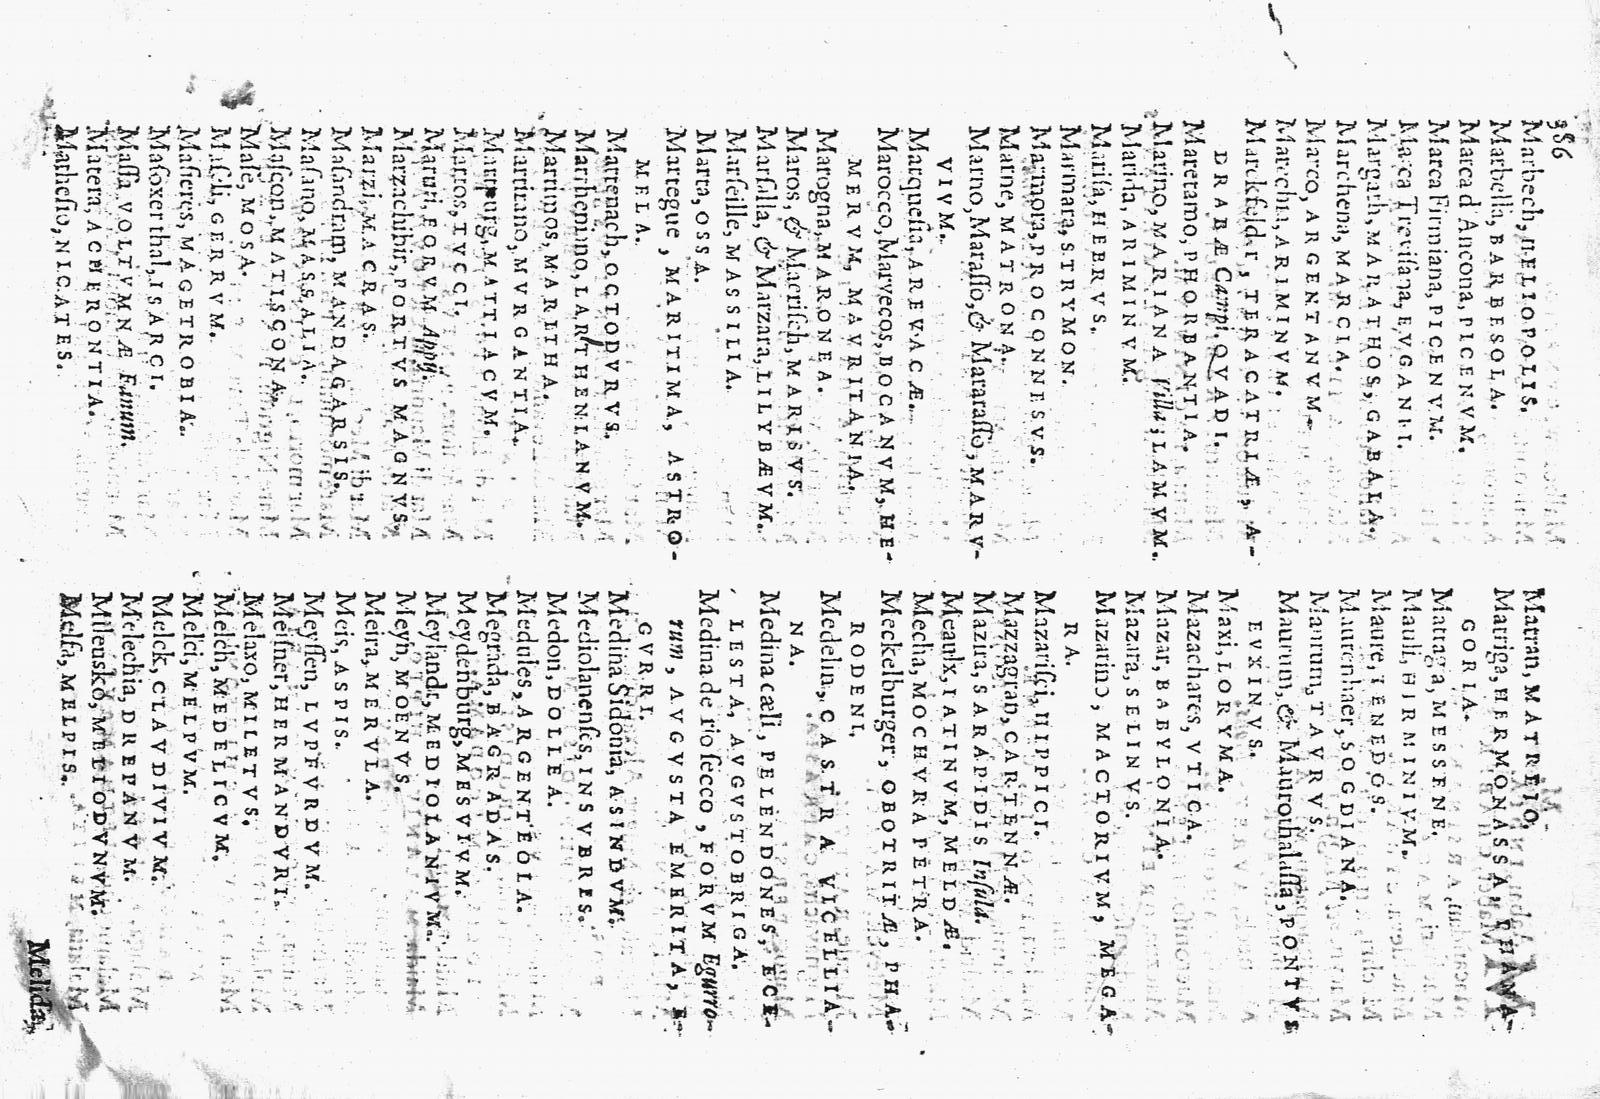 386
Marbech, HELIOPOLIS.
Marbella, BARBESOLA.
Marca d'Ancona, PICENVM.
Marca Firmiana, PICENVM.
Marca Trevisana, EVGANII.
Margath, MARATHOS, GABALA.
Marchena, MARCIA.
Marco, ARGENTANVM.
Marechia, ARIMINVM.
Marckfelder, TERACATRIÆ, A-
DRABÆ Campi, QVADI.
Maretamo, PHORBANTIA.
Marino, MARIANA Villa, LAMVM.
Marida, ARIMINVM.
Mariſa, HEBRVS.
Marmara, STRYMON.
Marmora, PROCONNESVS.
Marne, MATRONA.
Marno, Maraſſo, & Mararaſſo, MARV-
VIVM.
Marqueſia, AREVACÆ.
Marocco, Marvecos, BOCANVM, HE-
MERVM, MAVRITANIA.
Marogna, MARONEA.
Maros, & Maeriſch, MARISVS.
Marſalla, & Marzara, LILYBÆVM.
Marſeille, MASSILIA.
Marta, OSSA.
Martegue, MARITIMA, ASTRO-
MELA.
Martenach, OCTODVRVS.
Marthenino, LARTHENIANVM.
Martinos, MARITHA.
Martizano, MVRGANTIA.
Martpurg, MATTIACVM.
Martos, TVCCI.
Maruti, FORVM Appij.
Marzachibir, PORTVS MAGNVS.
Marzi, MACRAS.
Maſandram, MANDAGARSIS.
Maſano, MASSALIA.
Maſcon, MATISCONA.
Maſe, MOSA.
Maſcli, GERRVM.
Maſieres, MAGETROBIA.
Maſoxer thal, ISARCI.
Maſſa, VOLTVMNÆ Fanum.
Matera, ACHERONTIA.
Matheſio, NICATES.
Matran, MATREIO.
Matriga, HERMONASSA, PHANA-
GORIA.
Matraga, MESSENE.
Mauli, HIRMINIVM.
Maure, TENEDOS.
Maurenhaer, SOGDIANA.
Maurum, TAVRVS.
Maurum, & Maurothalaſſa, PONTVS
EVXINVS.
Maxi, LORYMA.
Mazachares, VTICA.
Mazar, BABYLONIA.
Mazara, SELINVS.
Mazarino, MACTORIVM, MEGA-
RA.
Mazariſci, HIPPICI.
Mazzagran, CARTENNÆ.
Mazira, SARAPIDIS Inſula.
Meaulx, IATINVM, MELDÆ.
Mecha, MOCHVRA PETRA.
Meckelburger, OBOTRITÆ, PHA-
RODENI.
Medelin, CASTRA VICELLIA-
NA.
Medina cæli, PELENDONES, ECE-
LESTA, AVGVSTOBRIGA.
Medina de rio ſecco, FORVM Egurro-
rum, AVGVSTA EMERITA, E-
GVRRI.
Medina Sidonia, ASINDVM.
Mediolanenſes, INSVBRES.
Medon, DOLIEA.
Medules, ARGENTEOLA.
Megrada, BAGRADAS.
Meydenburg, MESVIVM.
Meylandt, MEDIOLANIVM.
Meyn, MOENVS.
Meira, MERVLA.
Meis, ASPIS.
Meyſſen, LVPFVRDVM.
Meiſſner, HERMANDVRI.
Melaxo, MILETVS.
Melch, MEDELICVM.
Melci, MELPVM.
Melck, CLAVDIVIVM.
Melechia, DREPANVM.
Milensko, METIODVNVM.
Melfa, MELPIS.
Melidæ,